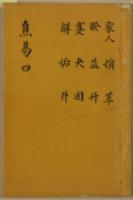 家人 損 萃
睽 益 升
蹇 夬 困
解 姤 井
焦易四